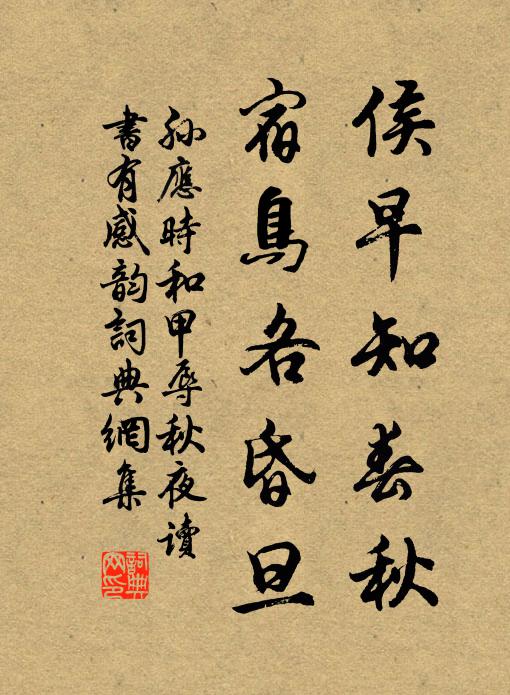 侯早知春秋
宿鳥各昏旦
孫應時和甲辱秋夜讀
書有感韵詞典網集
詞典
网印